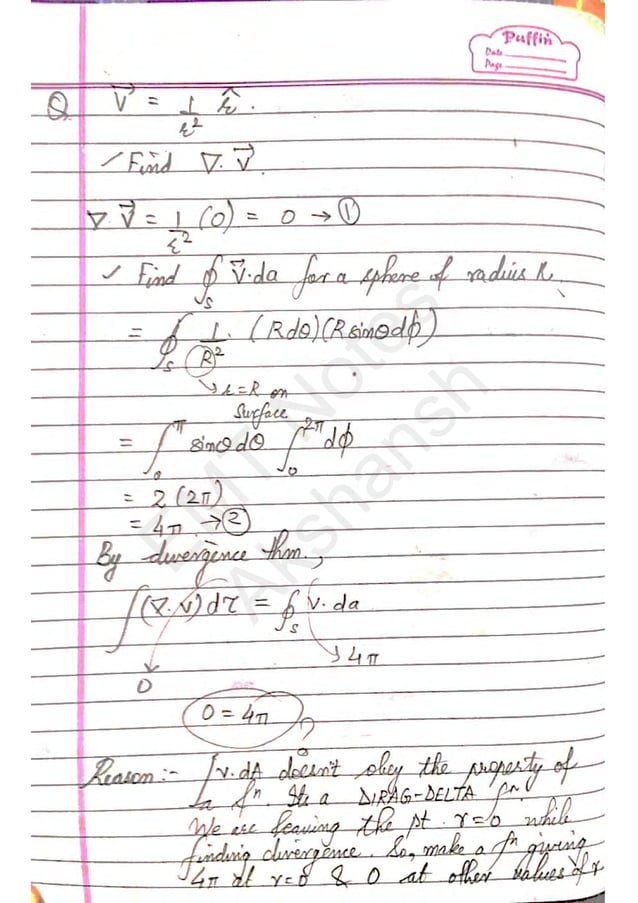 Puffin
Date
Page
Q V⃗ = 1/r² r̂.
✓ Find ∇.V⃗
∇.V⃗ = 1/r² (0) = 0 → ①
✓ Find ∮s V⃗.da for a sphere of radius R.
= ∮s 1/R² . (Rdθ)(Rsinθdϕ)
↳ r=R on
surface
= ∫₀^π sinθdθ ∫₀^2π dϕ
= 2 (2π)
= 4π → ②
By divergence thm,
∫(∇.v)dτ = ∮s v.da
0 → 4π
0 = 4π ?
Reason :- ∫v.dA doesn't obey the property of
a fⁿ. Its a DIRAG-DELTA fⁿ.
We are leaving the pt. r=0 while
finding divergence. So, make a fⁿ giving
4π at r=0 & 0 at other values of r
EMT Notes
Akshansh